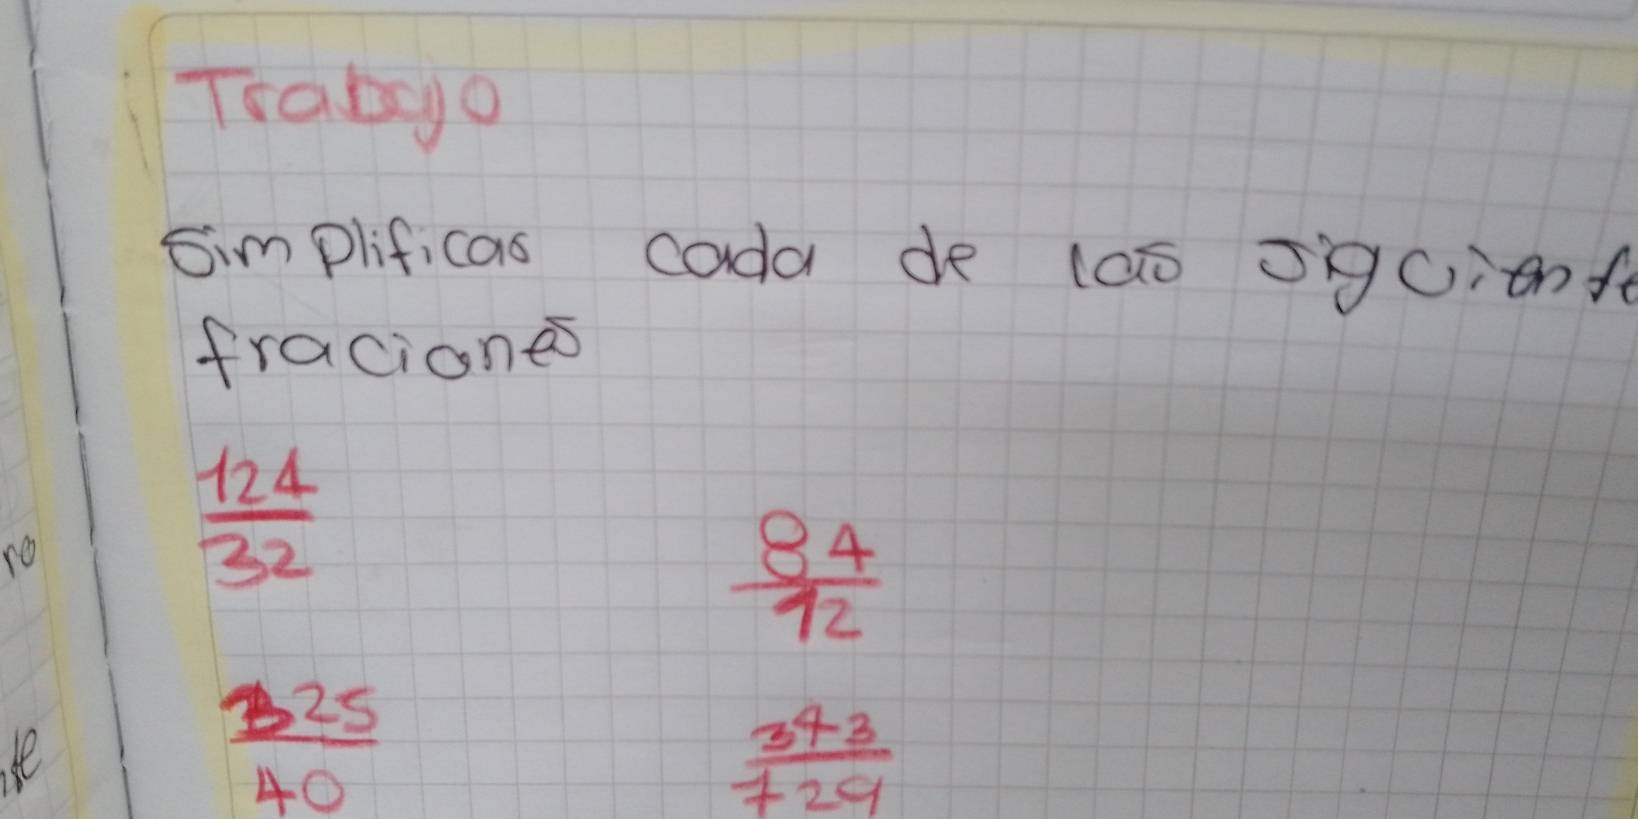 Trabajo
Simplificas cada de las sigciente
fraciones
124
32
84
12
325
40
343
729
ro
te